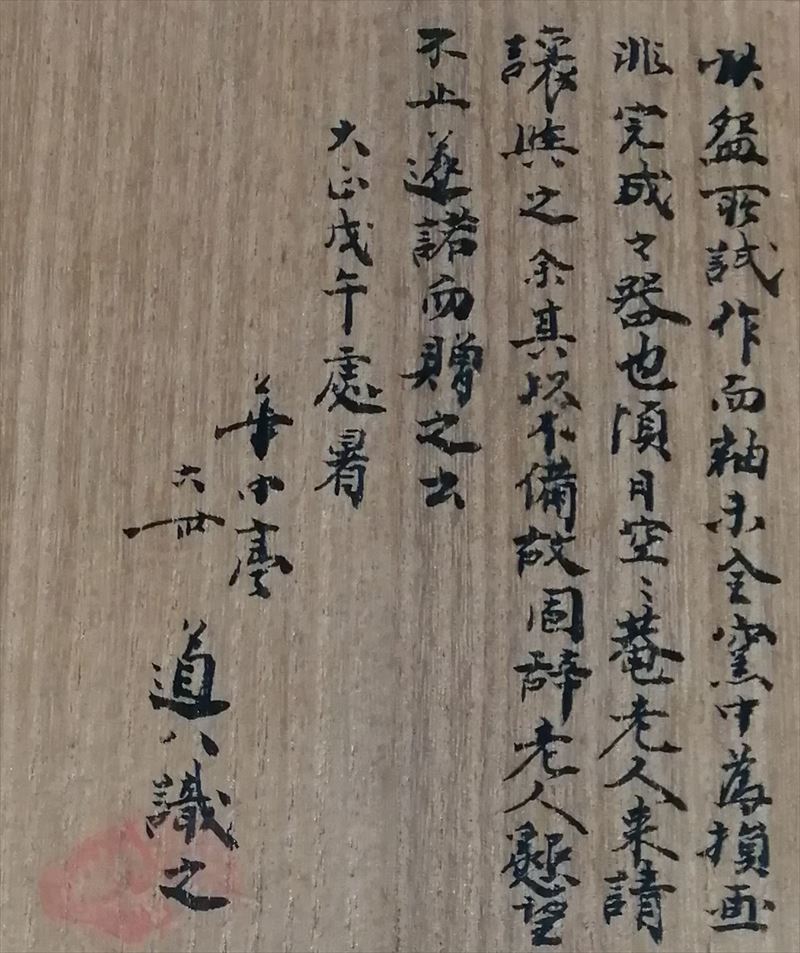 此盤所試作而釉未全窯中為損画
非完成之器也頃日空〻菴老人来請
讓與之余其以不備故固辞老人懇望
不止遂諾而贈之云
大正戊午處暑
華中亭
六世
道八識之